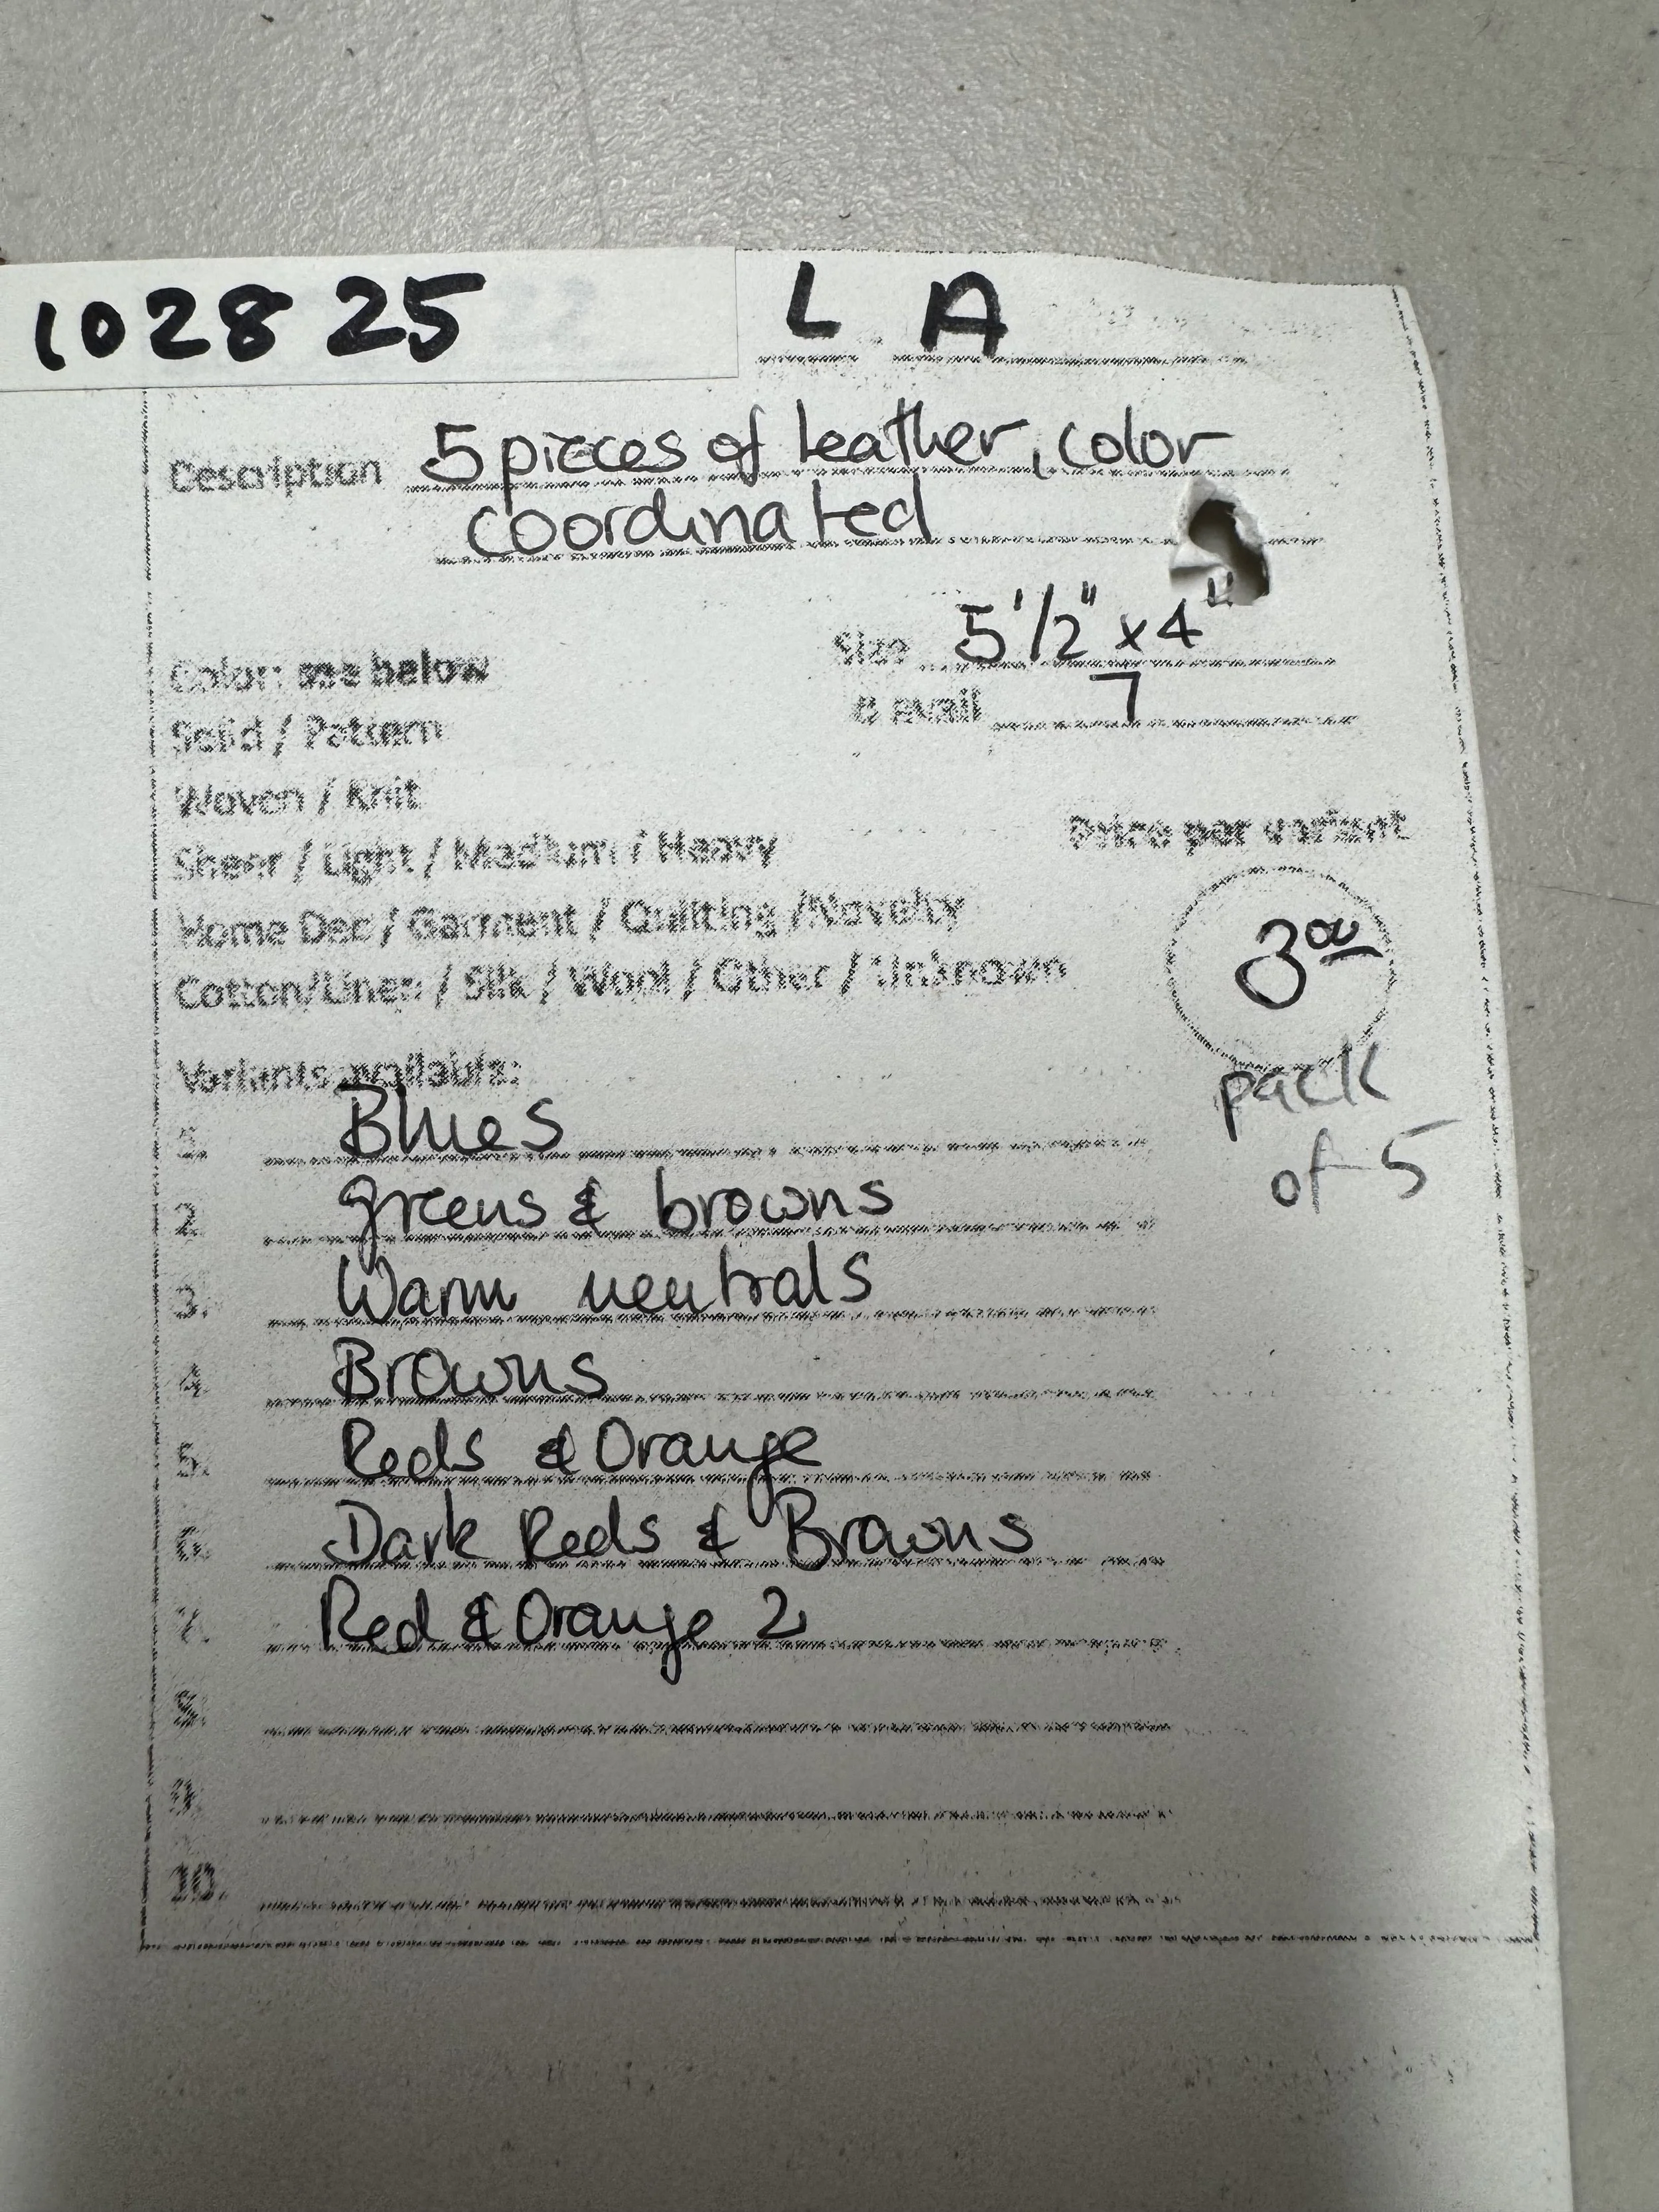 102825 L A
Description 5 pieces of leather, color
coordinated
Size 5 1/2" x 4"
Color: see below
# avail 7
Solid / Pattern
Woven / Knit
Sheer / Light / Medium / Heavy
Price per variant
Home Dec / Garment / Quilting / Novelty
3 00
Cotton/Linen / Silk / Wool / Other / Unknown
Variants available:
pack
of 5
1. Blues
2. greens & browns
3. Warm neutrals
4. Browns
5. Reds & Orange
6. Dark Reds & Browns
7. Red & Orange 2
8.
9.
10.